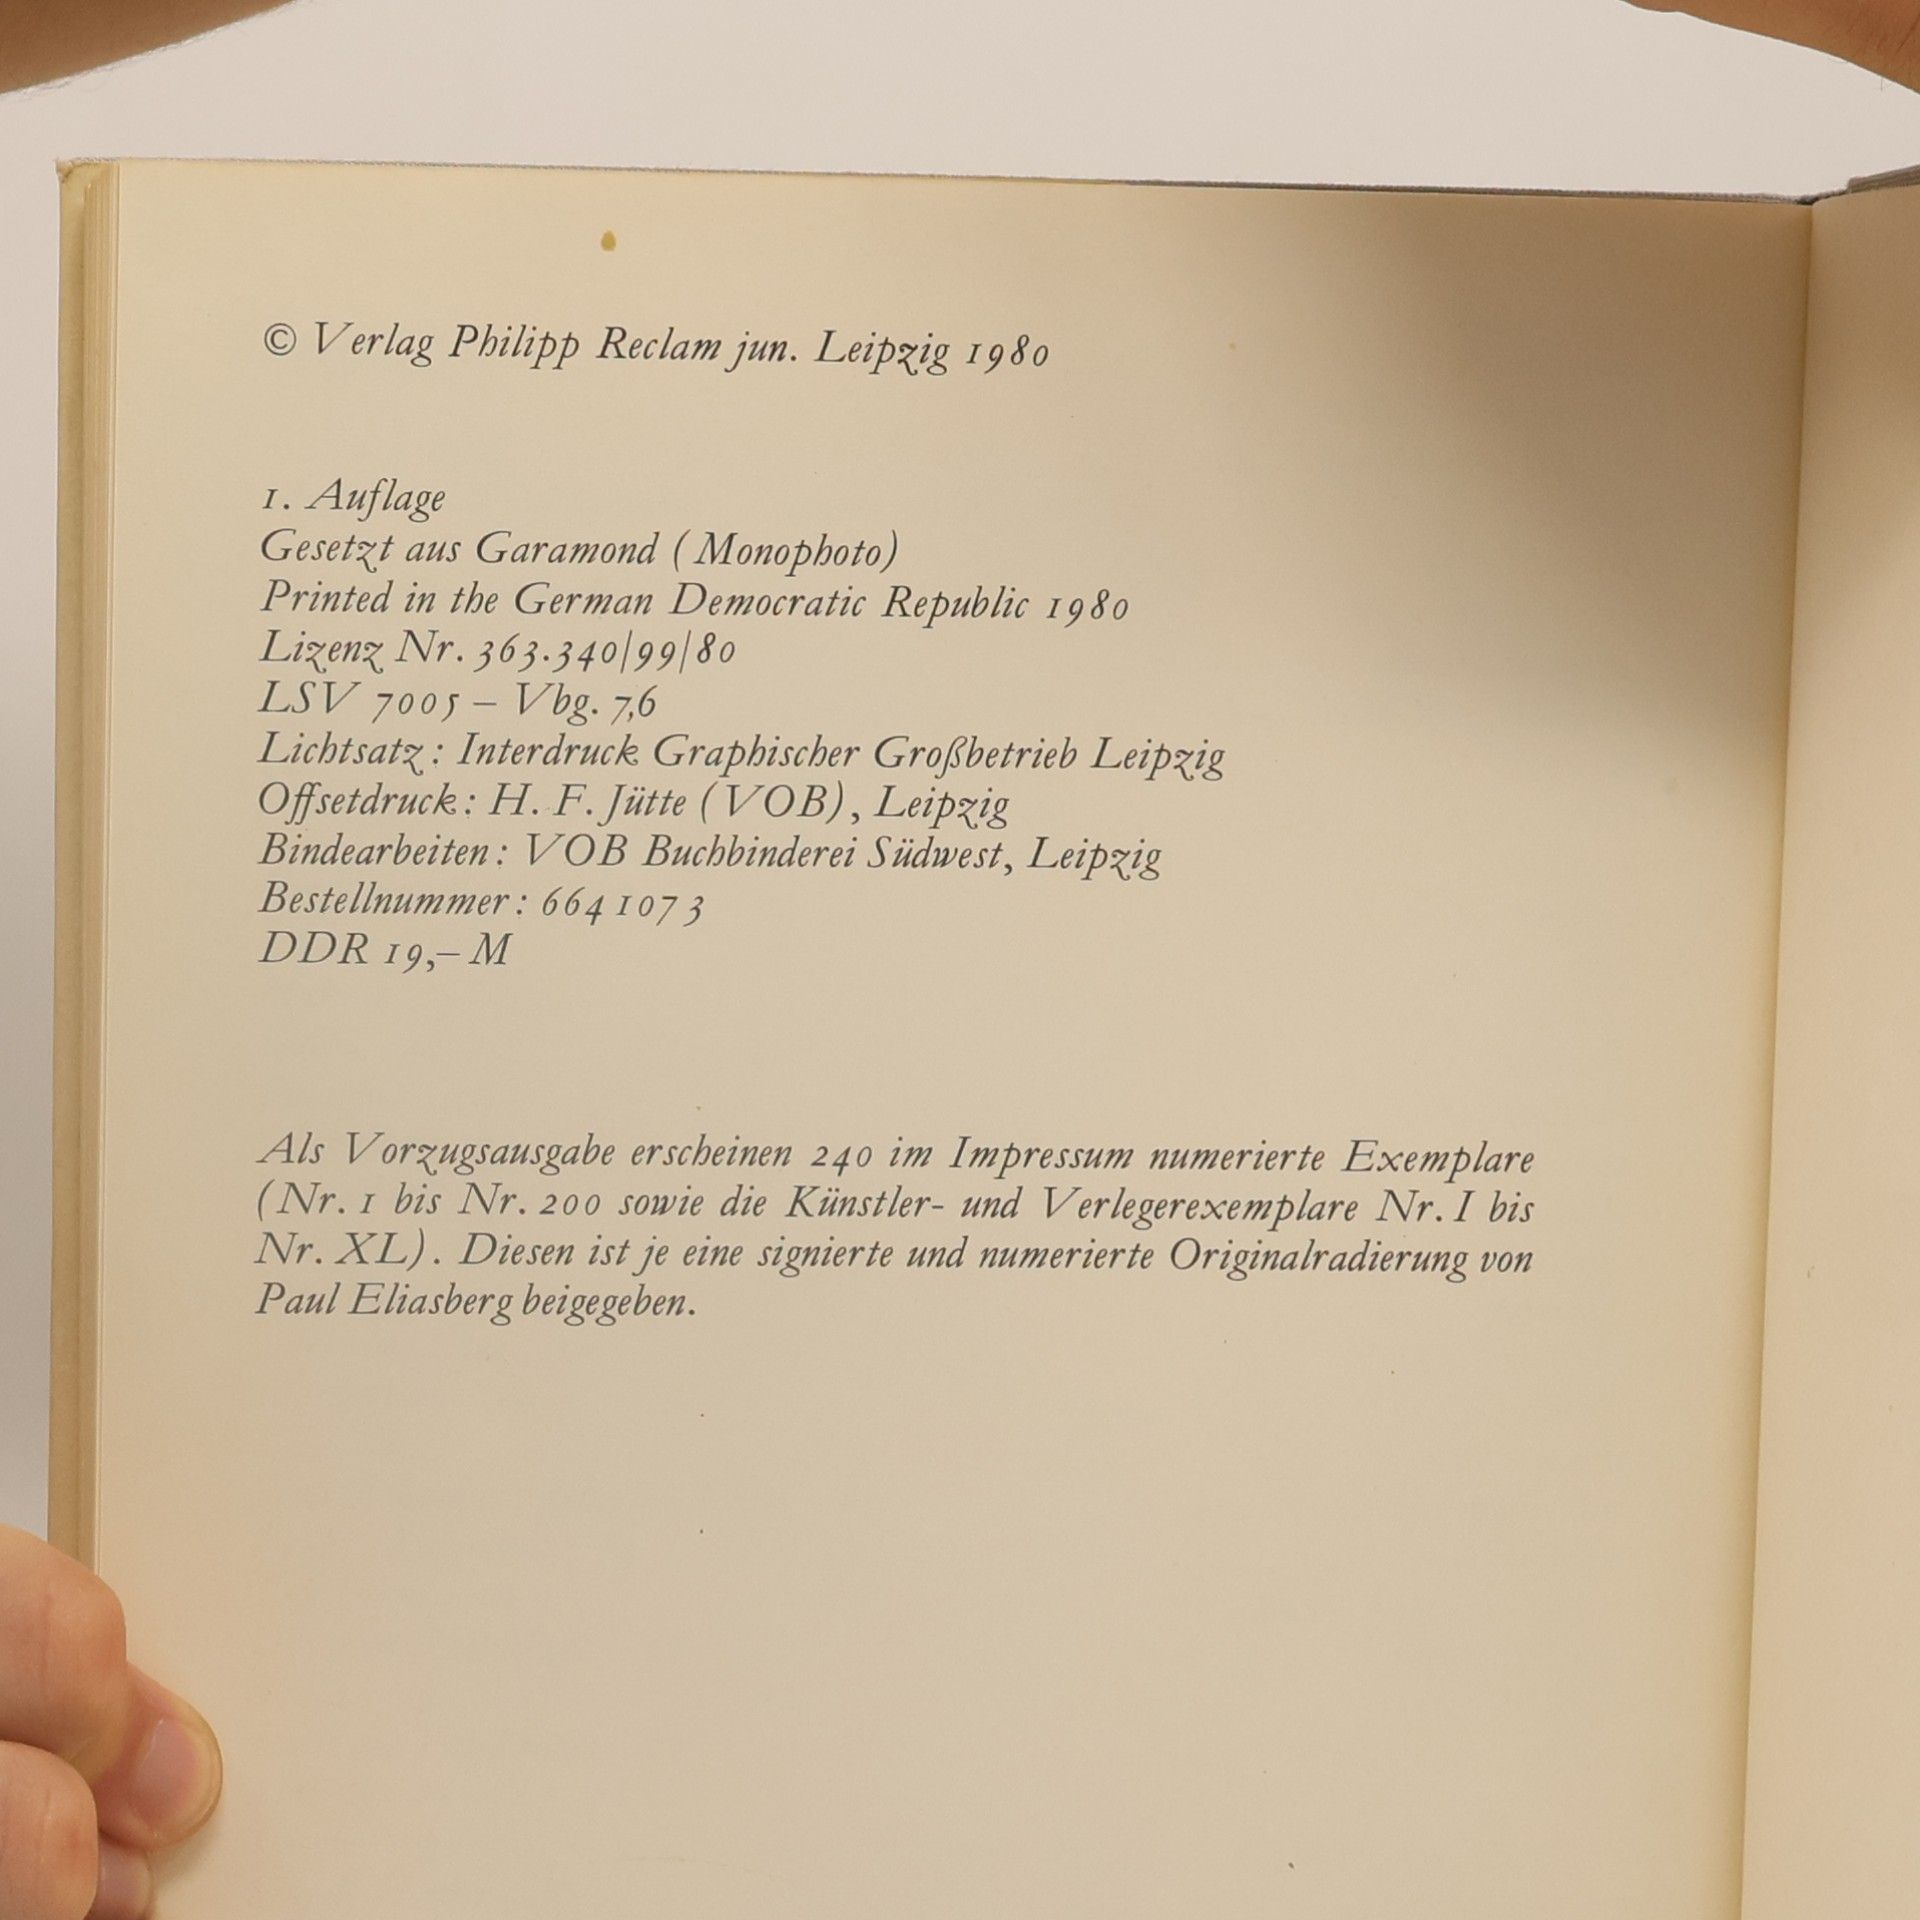 © Verlag Philipp Reclam jun. Leipzig 1980
1. Auflage
Gesetzt aus Garamond (Monophoto)
Printed in the German Democratic Republic 1980
Lizenz Nr. 363.340/99/80
LSV 7005 – Vbg. 7,6
Lichtsatz: Interdruck Graphischer Großbetrieb Leipzig
Offsetdruck: H. F. Jütte (VOB), Leipzig
Bindearbeiten: VOB Buchbinderei Südwest, Leipzig
Bestellnummer: 664 107 3
DDR 19,– M
Als Vorzugsausgabe erscheinen 240 im Impressum numerierte Exemplare
(Nr. 1 bis Nr. 200 sowie die Künstler- und Verlegerexemplare Nr. I bis
Nr. XL). Diesen ist je eine signierte und numerierte Originalradierung von
Paul Eliasberg beigegeben.